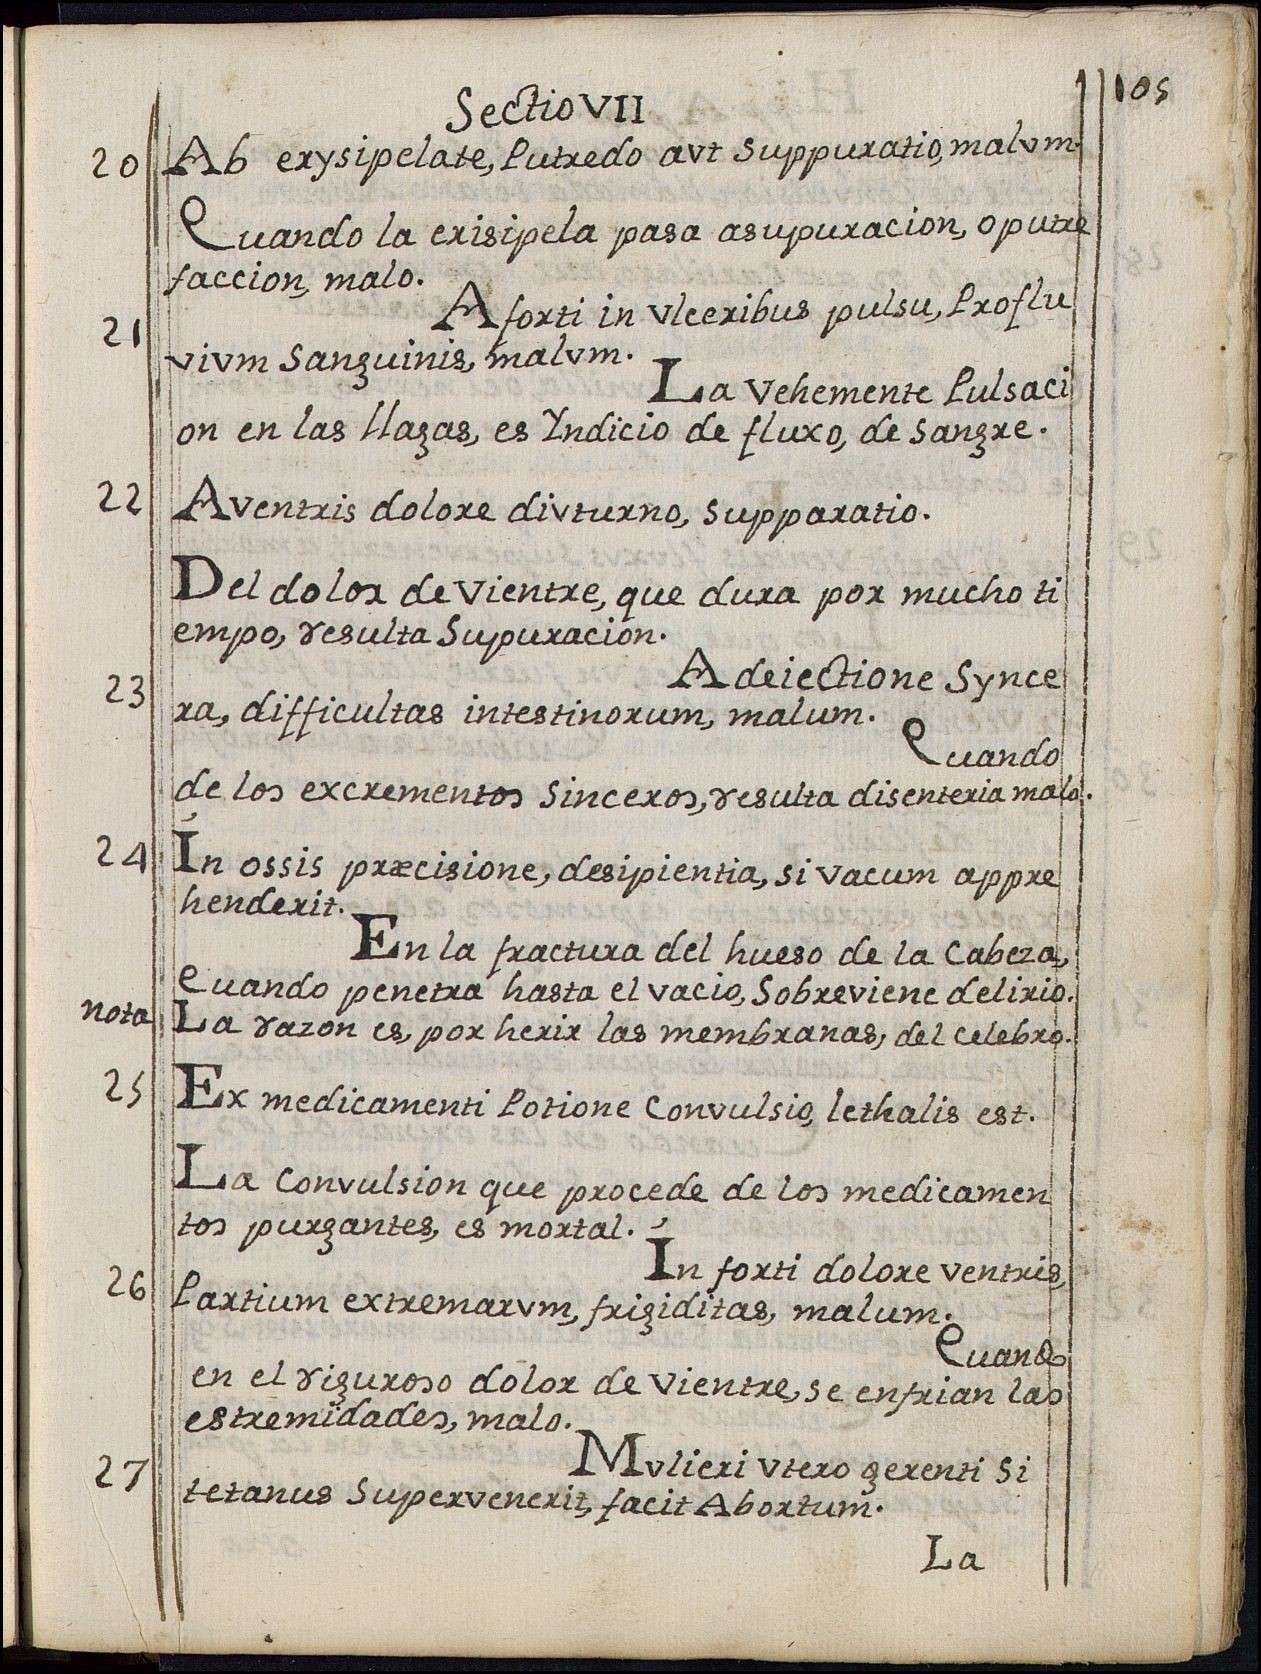 105
Sectio VII
20 Ab erysipelate, Putredo avt Suppuratio, malvm.
Quando la erisipela pasa asupuracion, o putre
faccion, malo.
21 A forti in vlceribus pulsu, Proflu
vivm Sanguinis, malvm.
La vehemente Pulsaci
on en las llagas, es Yndicio de fluxo, de Sangre.
22 A ventris dolore divturno, Supparatio.
Del dolor de Vientre, que dura por mucho ti
empo, resulta Supuracion.
23 A deiectione Synce
ra, difficultas intestinorum, malum.
Quando
de los excrementos Sinceros, resulta disenteria malo.
24 In ossis præcisione, desipientia, si vacum appre
henderit.
En la fractura del hueso de la Cabeza,
Cuando penetra hasta el vacio, Sobreviene delirio.
nota La razon es, por herir las membranas, del celebro.
25 Ex medicamenti Potione Convulsio, lethalis est.
La Convulsion que procede de los medicamen
tos purgantes, es mortal.
26 In forti dolore ventris,
Partium extremarvm, frigiditas, malum.
Quando
en el riguroso dolor de Vientre, se enfrian las
estremidades, malo.
27 Mvlieri vtero gerenti Si
tetanus Supervenerit, facit Abortum.
La